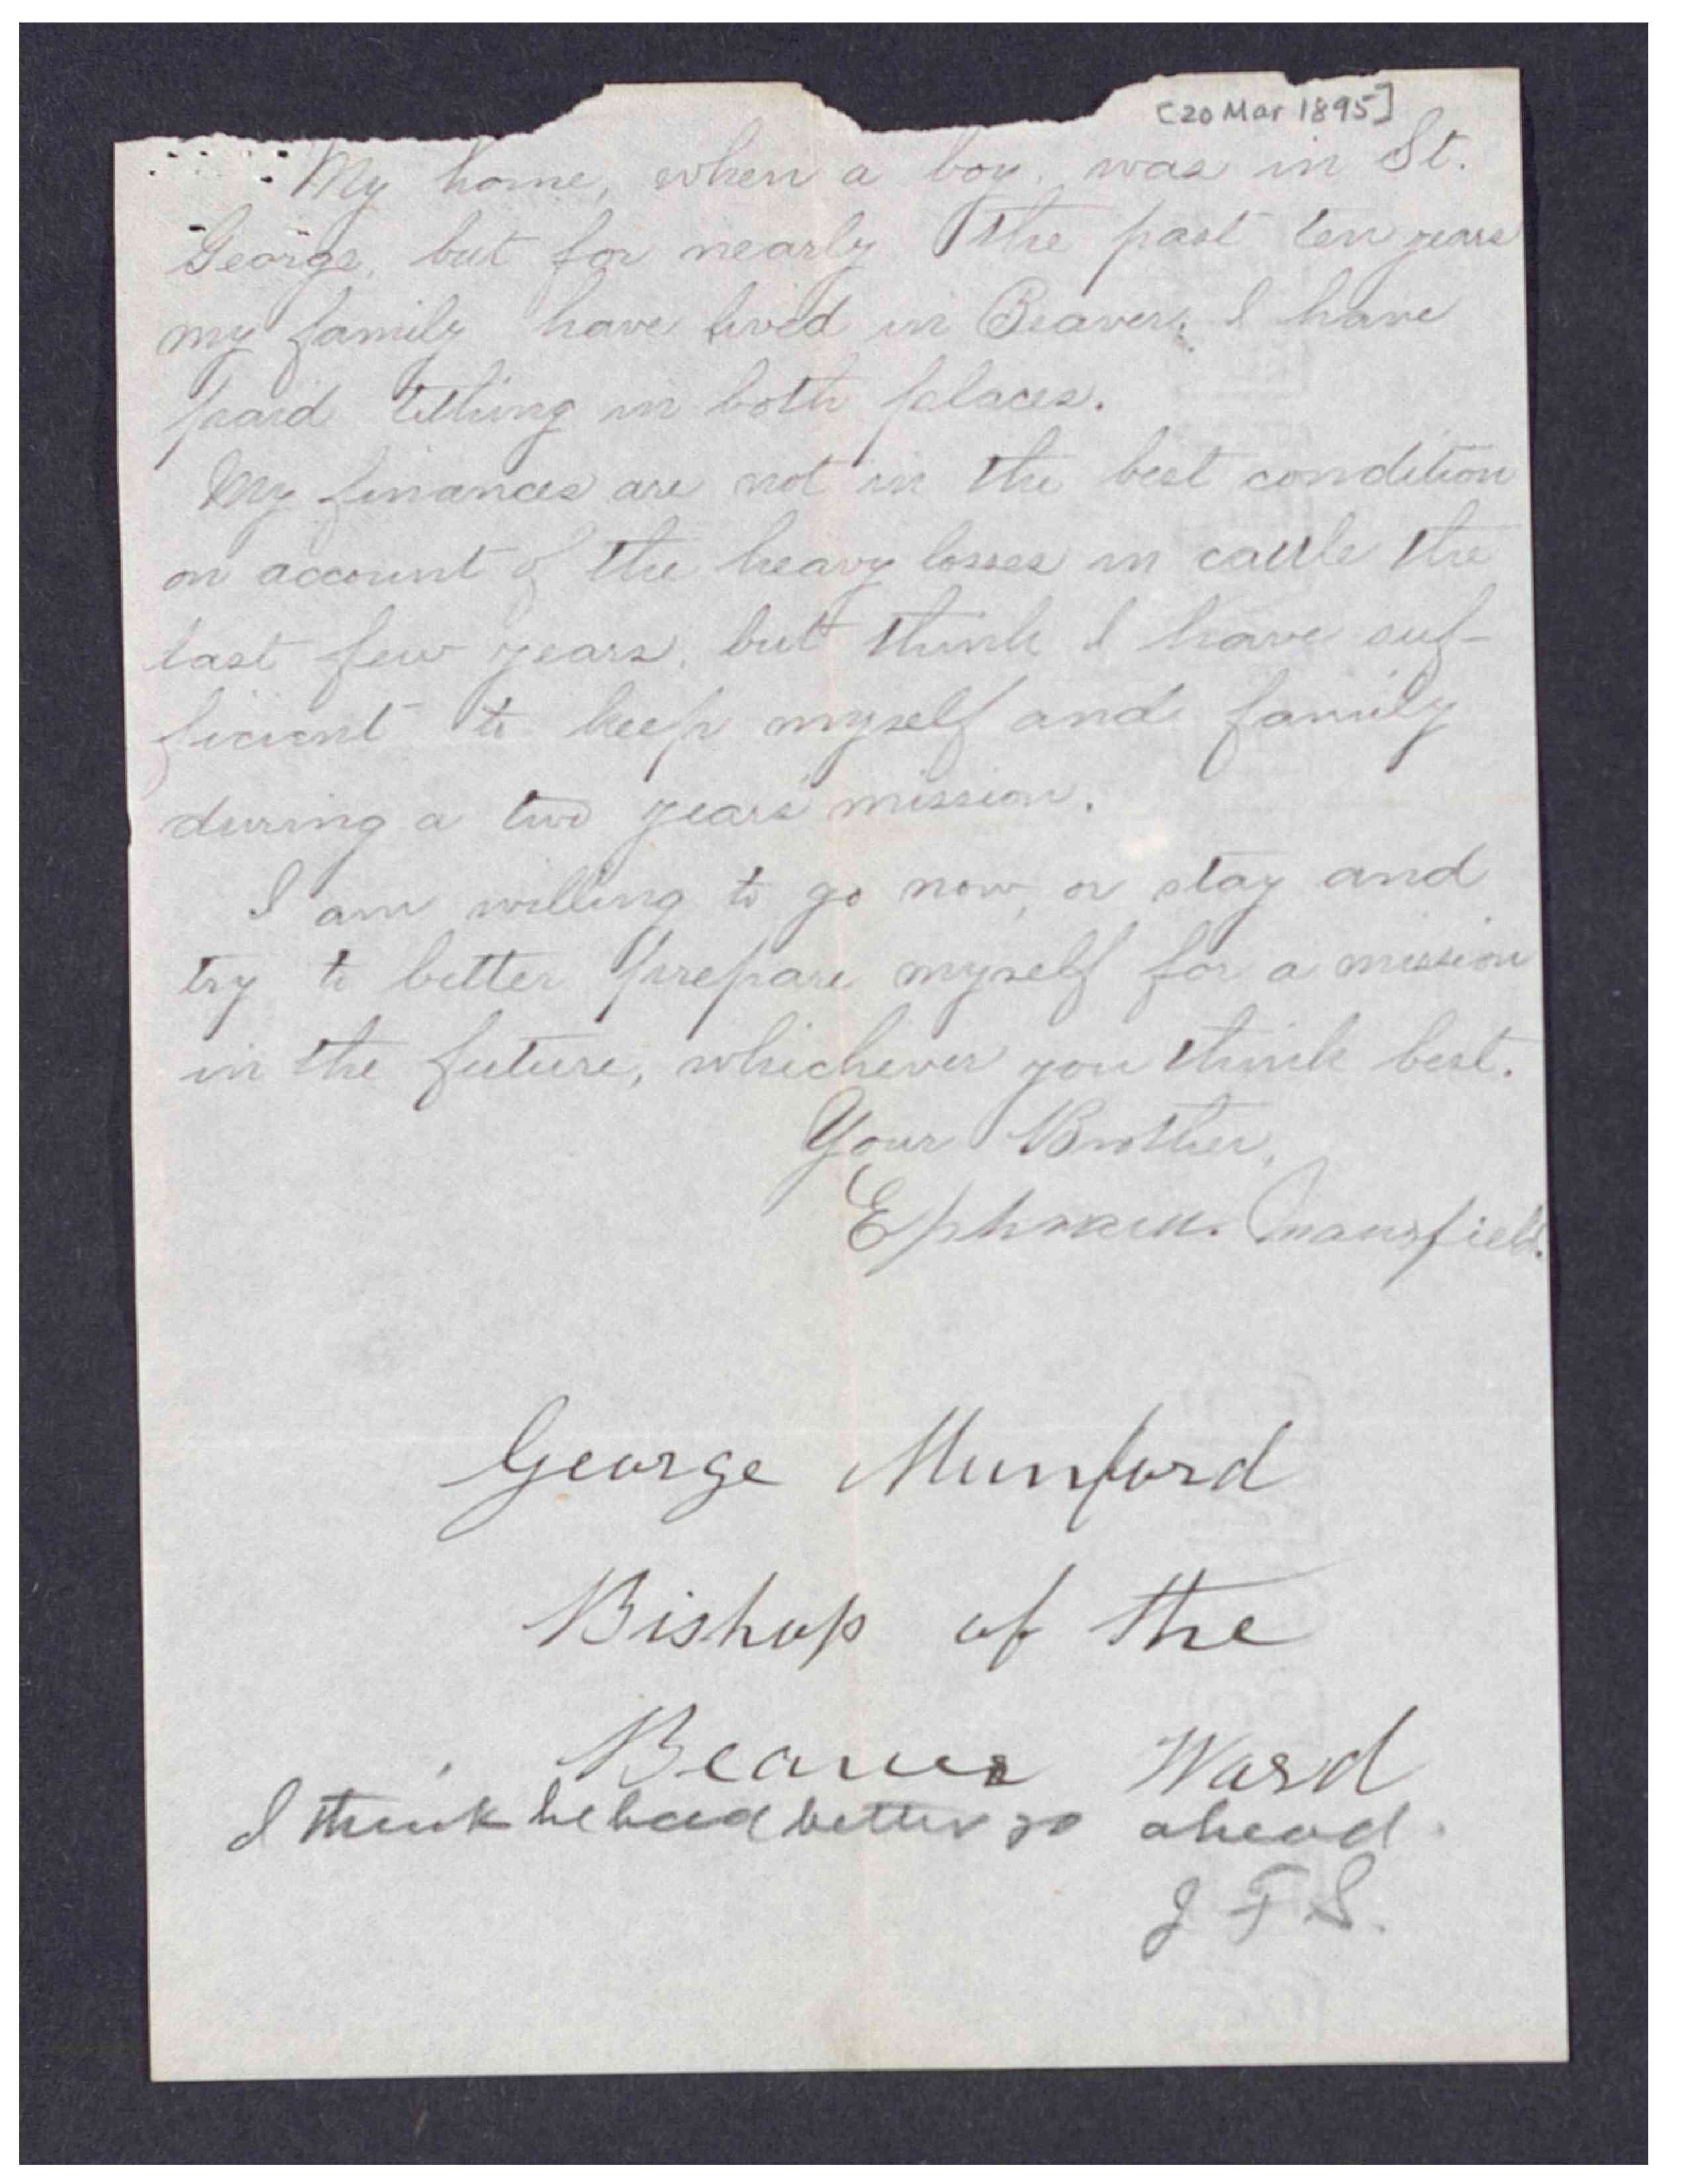 [20 Mar 1895]
My home, when a boy, was in St.
George, but for nearly the past ten years
my family have lived in Beaver; I have
paid tithing in both places.
My finances are not in the best condition
on account of the heavy losses in cattle the
last few years, but think I have suf-
ficient to keep myself and family
during a two years' mission.
I am willing to go now, or stay and
try to better prepare myself for a mission
in the future, whichever you think best.
Your Brother,
Ephraim Mansfield.
George Munford
Bishop of the
Beaver Ward
I think he had better go ahead.
J F S.